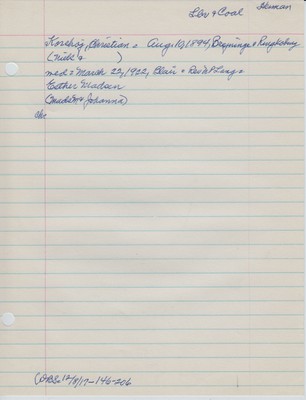 Lbr & Coal Herman
Korshoj, Christian s. Aug. 10, 1894, Breginge & Ringkobing
(Niels & )
med & March 22, 1922, Blair & Rev N P Lang
Esther Madsen
(Mads & Johanna)
chr
(DBS. 12/8/17-146-206